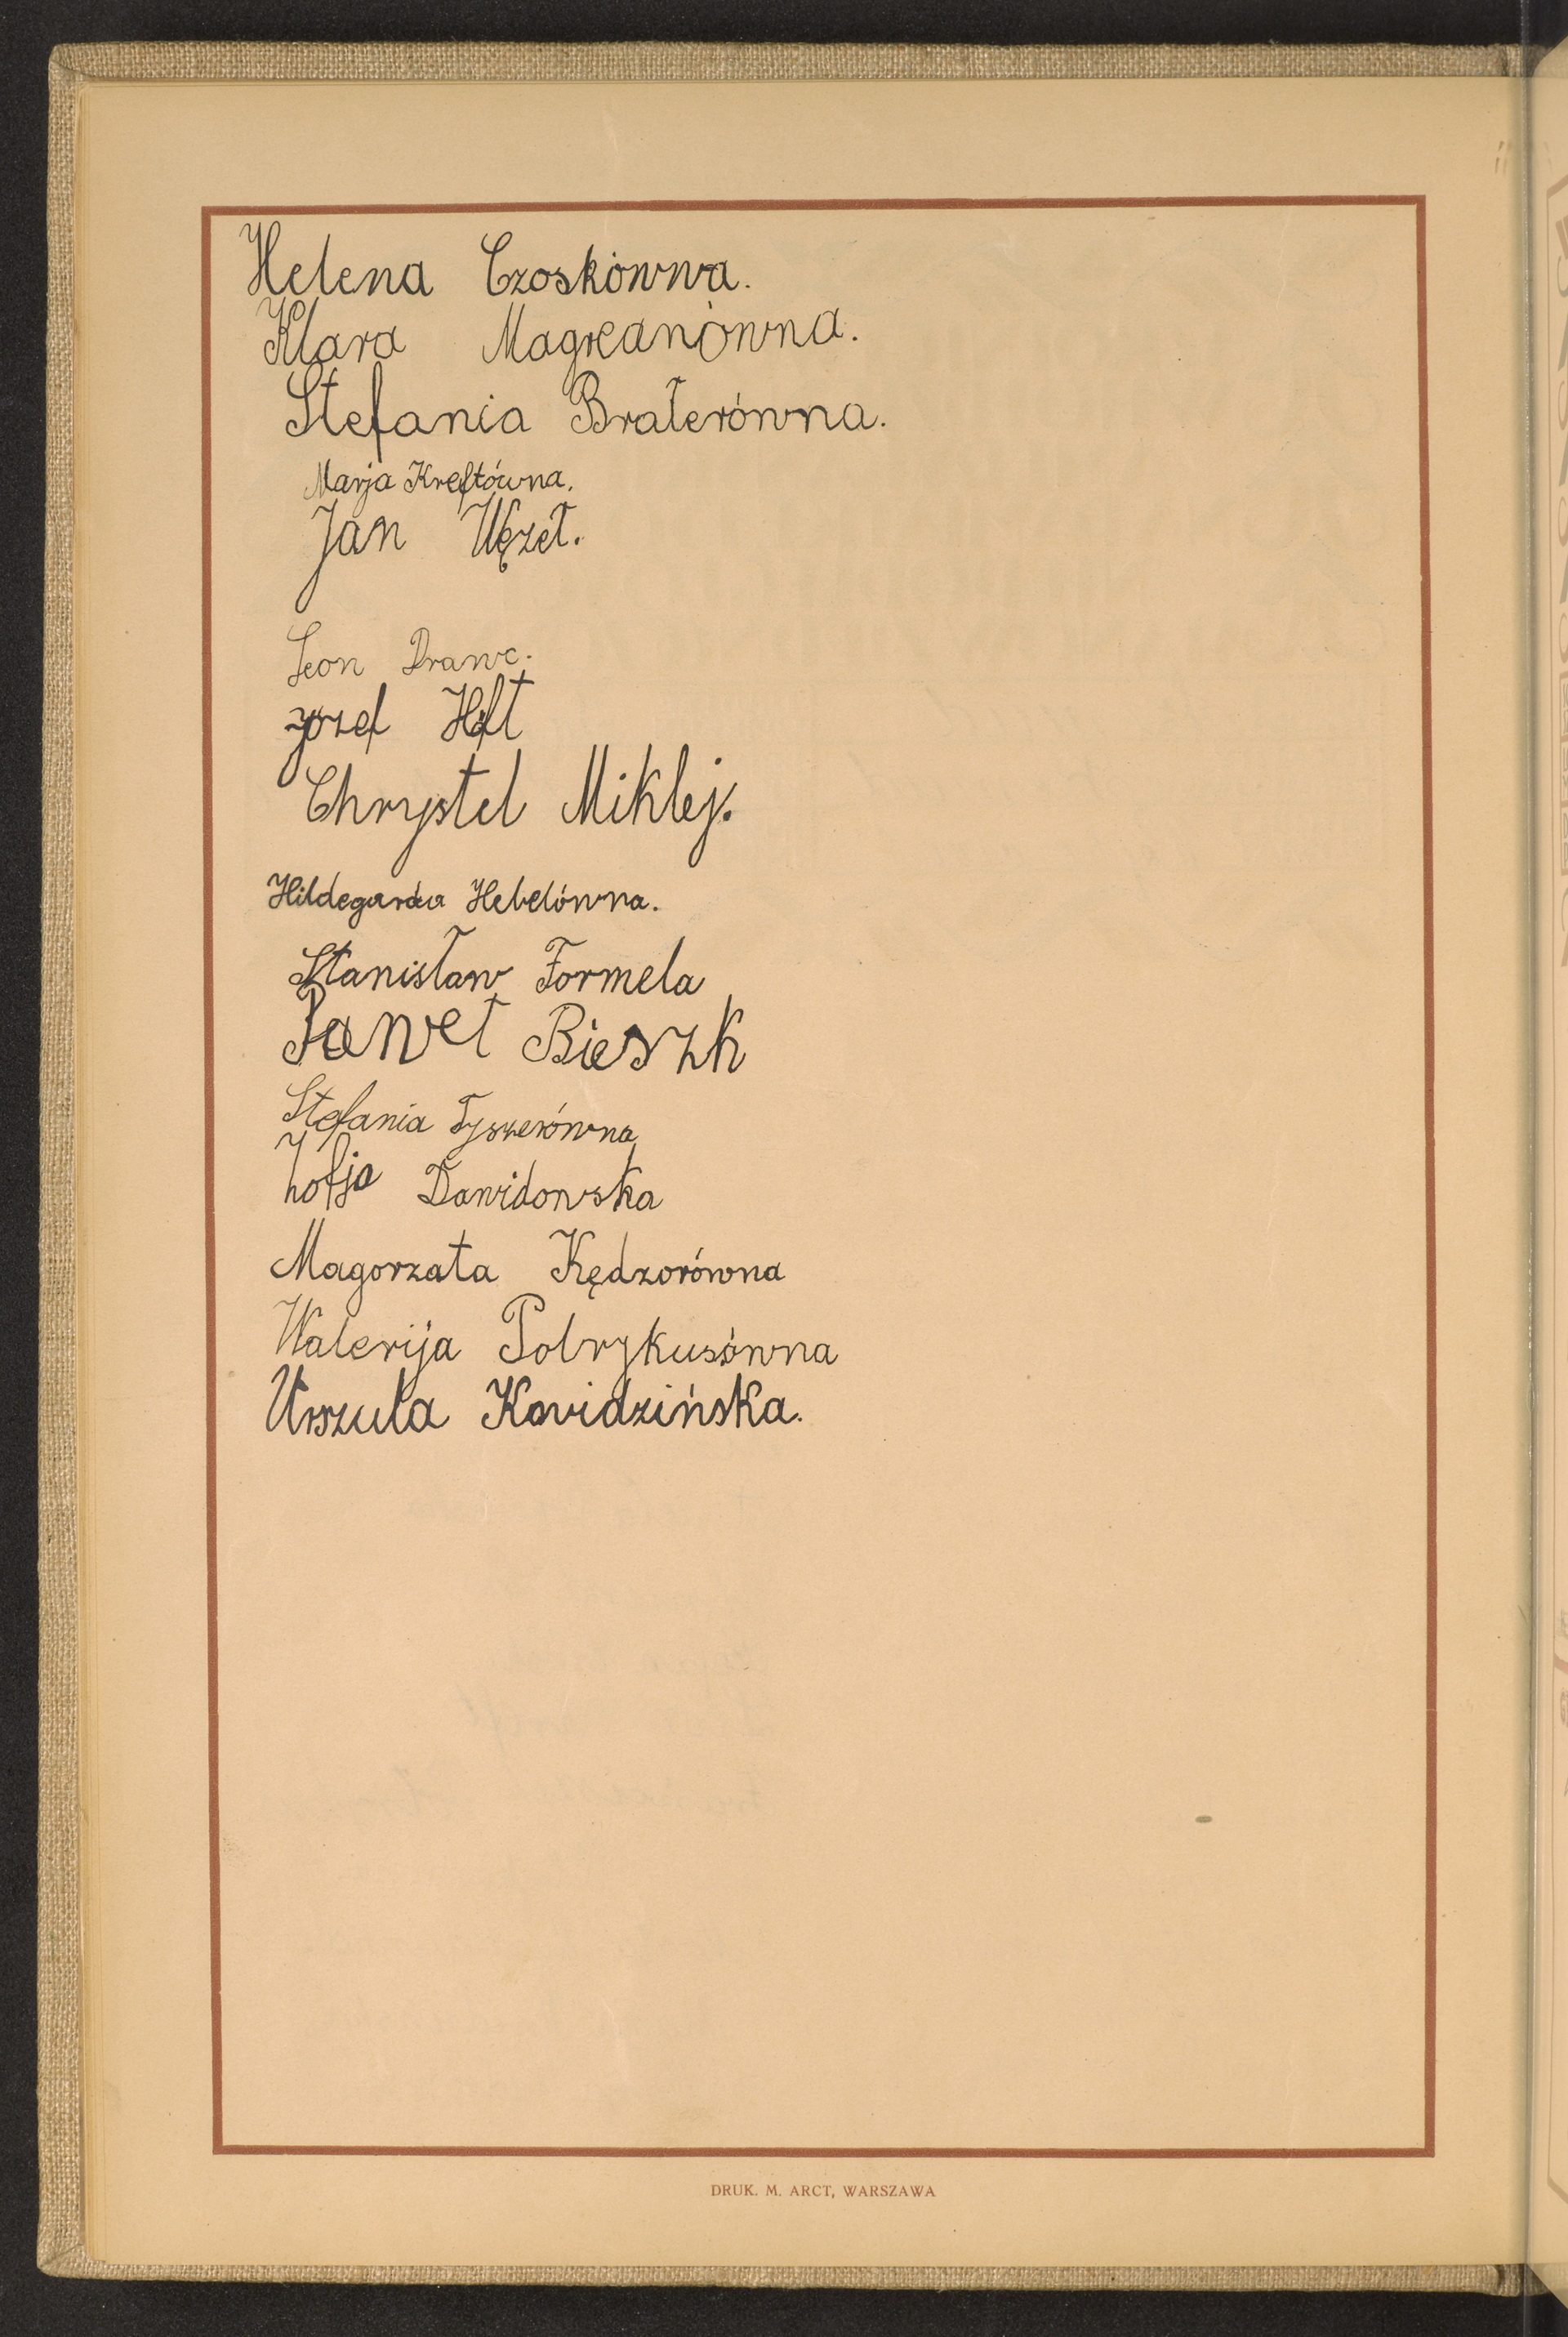 Helena Czoskówna.
Klara Magreanówna.
Stefania Brałerówna.
Marja Kreftówna.
Jan Węzeł.
Leon Drawc.
Józef Hift
Chrystel Miklej.
Hildegarda Hebelówna.
Stanisław Formela
Paweł Bieszk
Stefania Tyszerówna
Zofja Dawidowska
Magorzata Kędzorówna
Walerija Pobrykusówna
Urszula Kowidzińska.
DRUK. M. ARCT, WARSZAWA